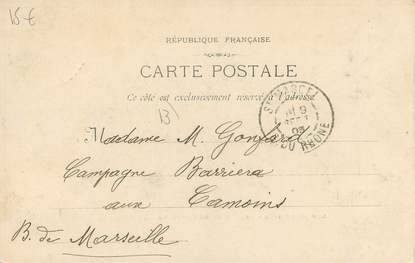 15 €
RÉPUBLIQUE FRANÇAISE
CARTE POSTALE
Ce côté est exclusivement réservé à l'adresse
13
Madame M. Gonfard
Campagne Barriera
aux Camoins
B. de Marseille
ST MARCEL
9
03
DU RHÔNE